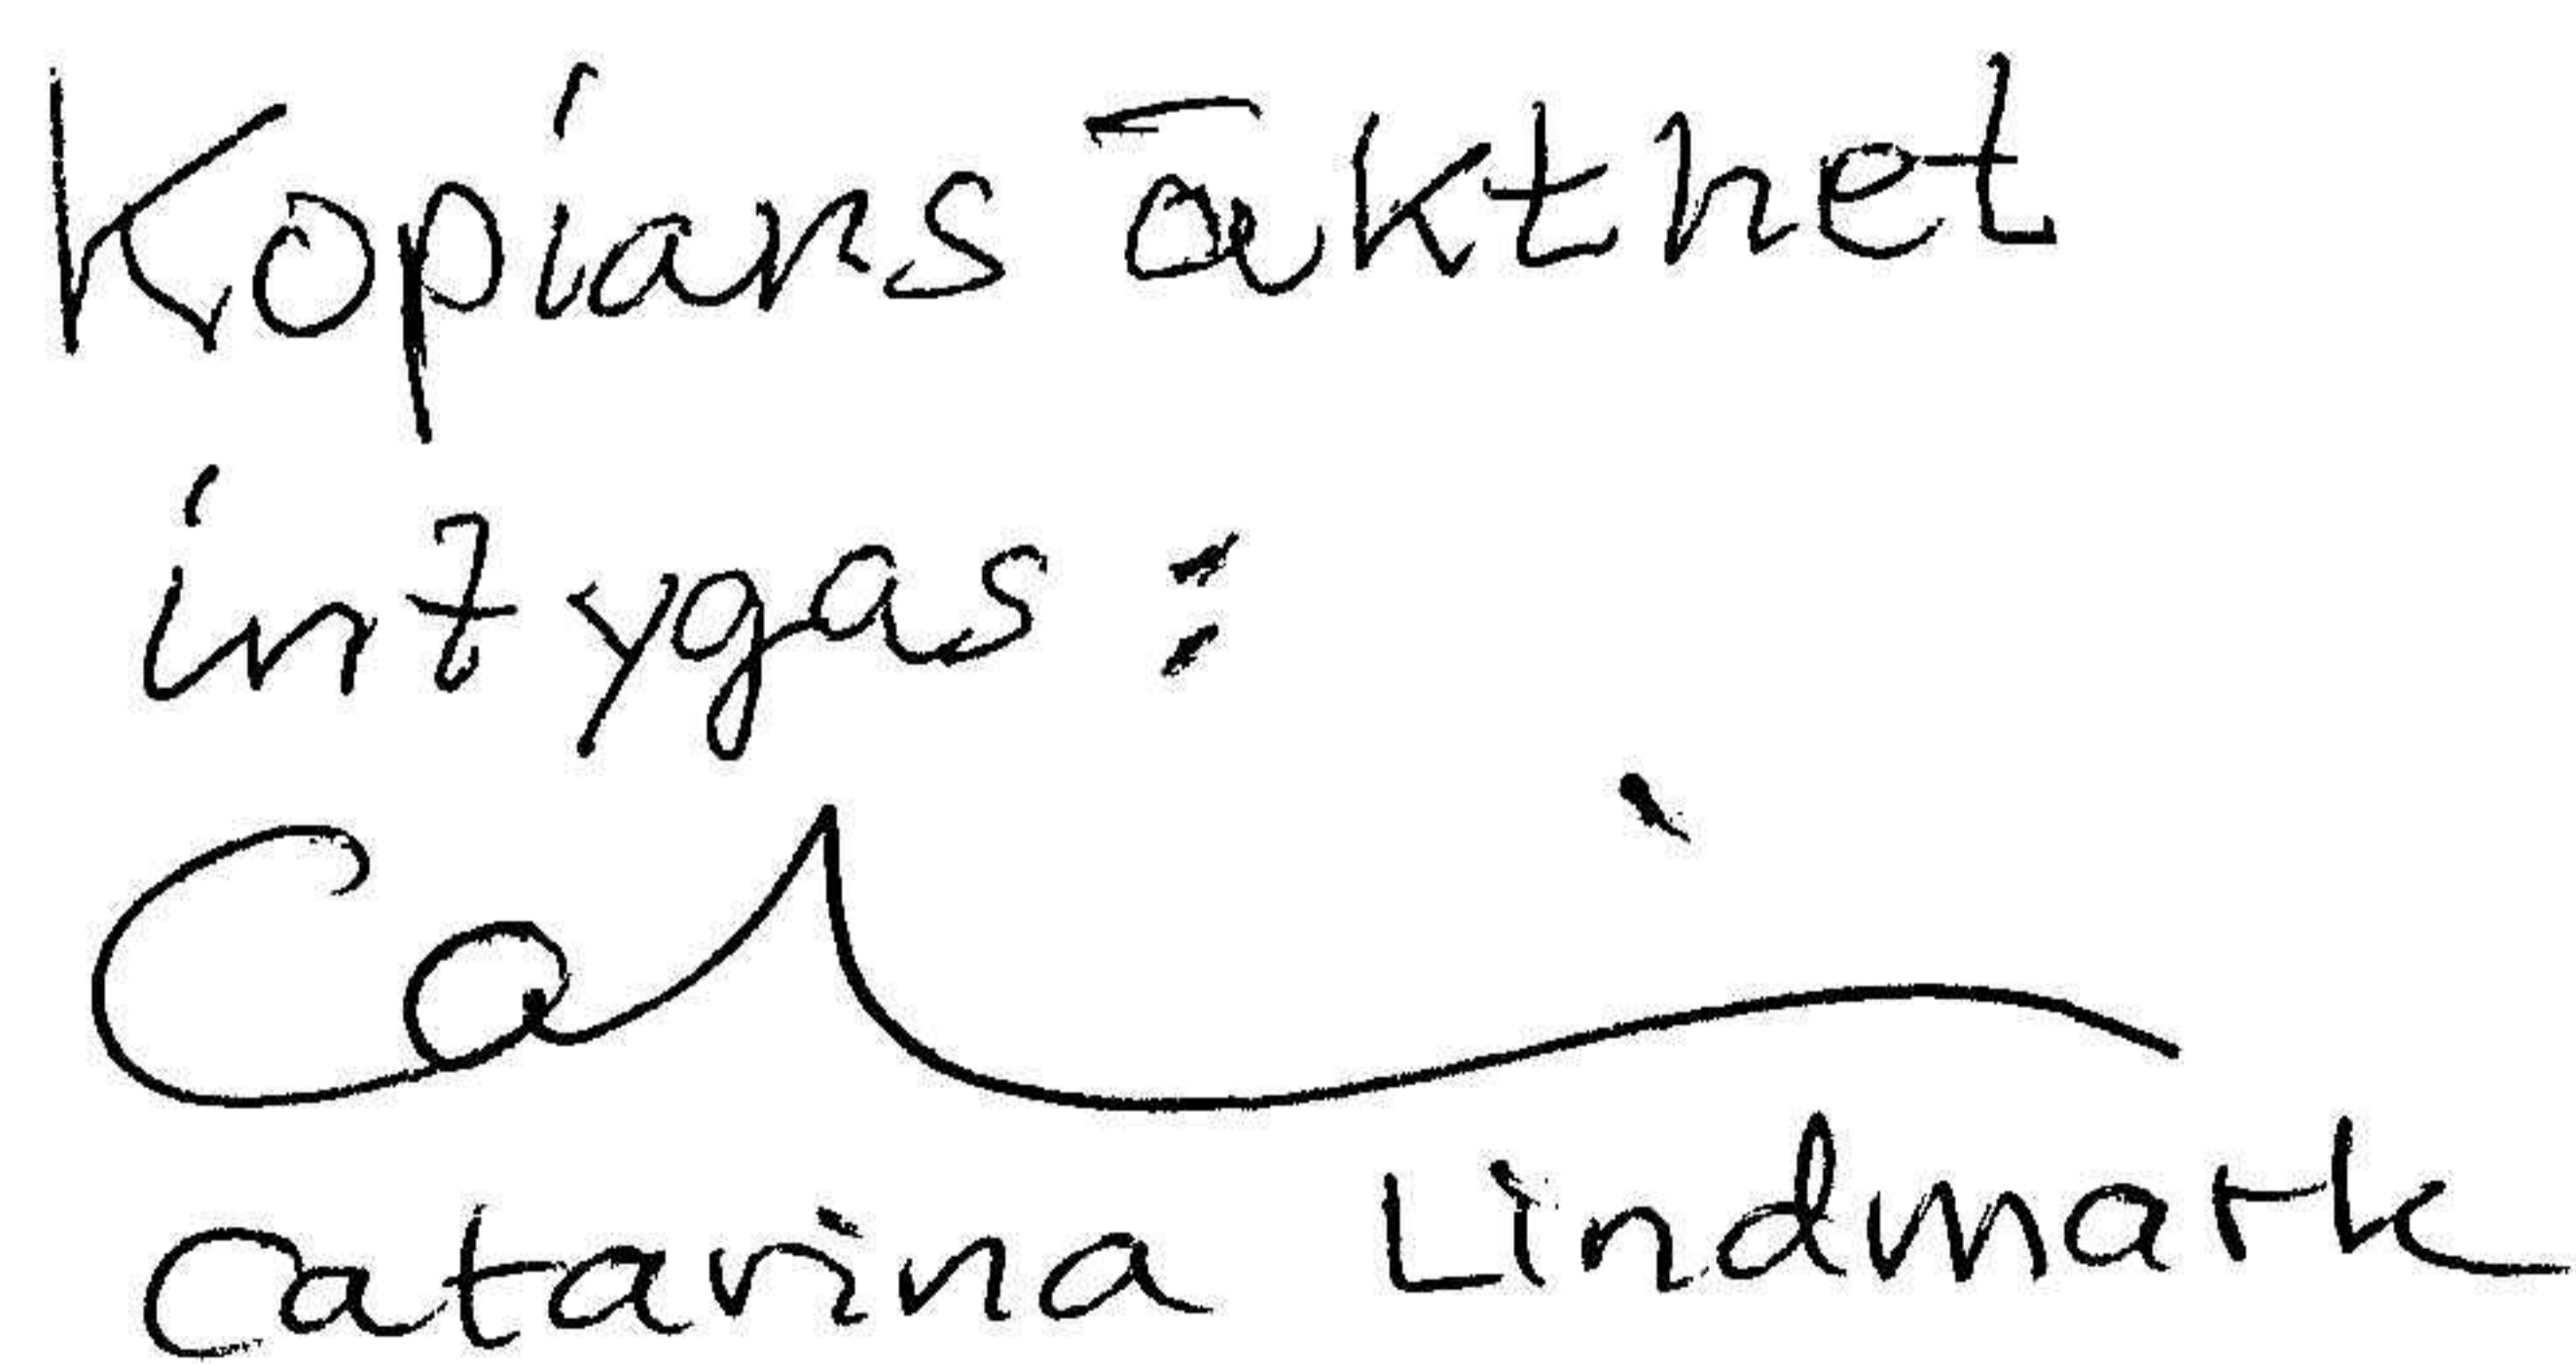 Kopians äkthet
intygas:
Catarina Lindmark